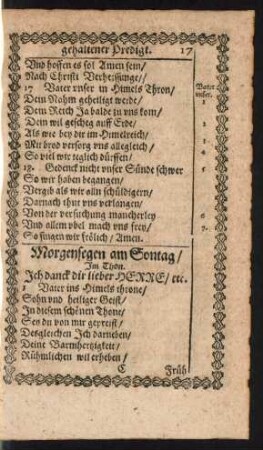 gehaltener Predigt. 17
Vnd hoffen es sol Amen sein/
Nach Christi Verheissunge//
17 Vater vnser in Himels Thron/
Dein Nahm geheiliget werde/
Dein Reich Ja balde zu vns kom/
Dein wil gescheg auff Erde/
Als wie bey dir im Himelreich/
Mit brod versorg vns allegleich/
So viel wir teglich dürffen/
18. Gedenck nicht vnser Sünde schwer
So wir haben begangen/
Vergib als wir alln schüldigern/
Darnach thut vns verlangen/
Von der versuchung mancherley
Vnd allem vbel mach vns frey/
So singen wir frölich/ Amen.
Vater
vnser.
1
2
3
4
5
6
7.
Morgensegen am Sontag/
Im Thon.
Ich danck dir lieber HERRE/ etc.
1 Vater ins Himels throne/
Sohn vnd heiliger Geist/
In diesem schönen Thone/
Sey du von mir gepreist/
Desgleichen Ich darneben/
Deine Barmhertzigkeit/
Rühmlichen wil erheben/
C Früh